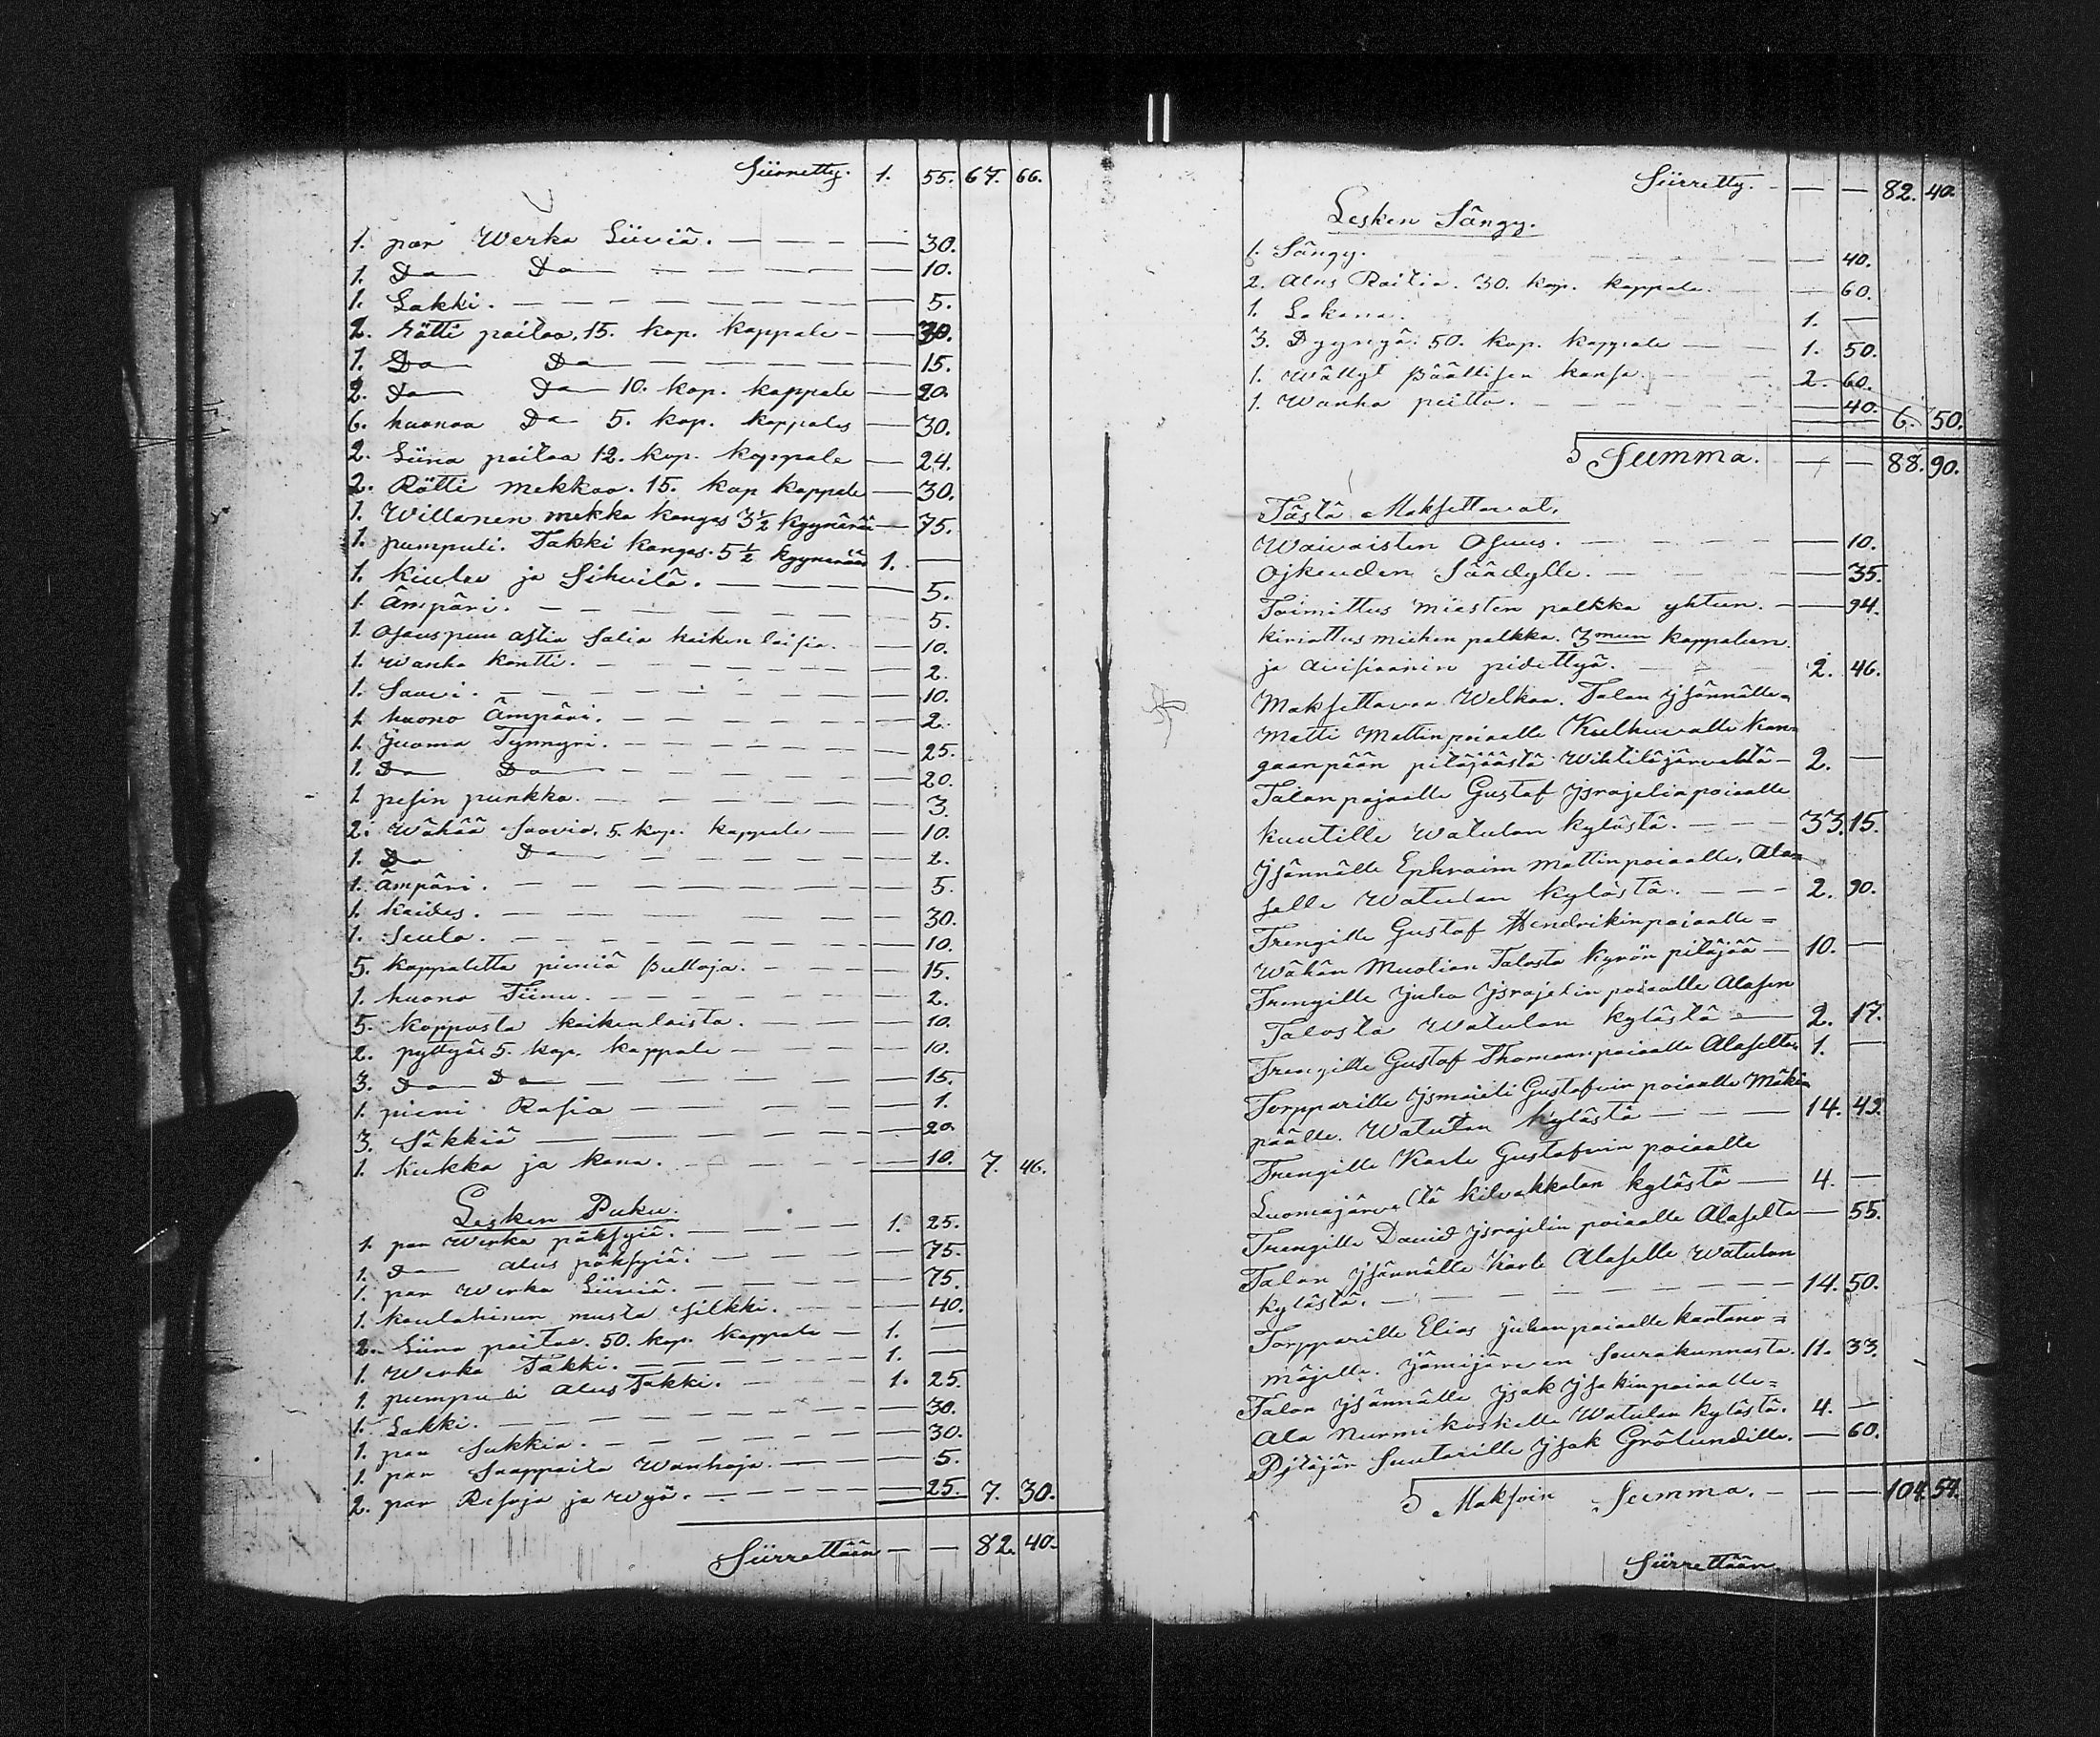 Siirretty. 1. 55. 67. 66.
1. par Werka Liiviä. — 30.
1. Do Do — 10.
1. Lakki. — 5.
2. rätti paitaa, 15. kop. kappale — 30.
1. Do Do — 15.
2. Do Do 10. kop. kappale — 20.
6. huonoa Do 5. kop. kappales — 30.
2. Liina paitaa 12. kop. kappale — 24.
2. Rätti mekkoo. 15. kop kappale — 30.
1. Willanen mekko kangas 3½ kyynärää — 75.
1. pumpuli. Takki kangas. 5½ kyynärää 1. —
1. Kiulu ja Sihvilä. — 5.
1. Ämpäri. — 5.
1. astia Salia kaiken laisia. — 10.
1. Wanha kontti. — 2.
1. Saavi. — 10.
1. huono Ämpäri. — 2.
1. Juoma Tynnyri. — 25.
1. Do Do — 20.
1. pesin punkka. — 3.
2. Wähää Saavia. 5. kop. kappale — 10.
1. Do Do — 2.
1. Ämpäri. — 5.
1. kaides. — 30.
1. Seula. — 10.
5. kappaletta pieniä puttoja. — 15.
1. huono Tiinu. — 2.
5. kappasta kaikenlaista. — 10.
2. pyttyäs 5. kop. kappale — 10.
3. Do Do — 15.
1. pieni Rasia — 1.
3. Säkkiä — 20.
1. kukko ja kana. — 10. 7. 46.
Lesken Puku.
1. par Werka pöksyiä. — 1. 25.
1. Do alus pöksyiä. — 75.
1. par Werka Liiviä. — 75.
1. kaulahinen musta silkki. — 40.
2. Liina paitaa. 50. kop. kappale — 1. —
1. Werka Takki. — 1. —
1. pumpuli alus Takki. — 1. 25.
1. Lakki. — 30.
1. par Sukkia. — 30.
1. par Saappaita Wanhoja. — 5.
2. par Resoja ja Wyö. — 25. 7. 30.
Siirrettään — — 82. 40.
Siirretty. — — 82. 40.
Lesken Sängy.
1. Sängy. — 40.
2. Alus Raitia. 30. kop. kappale. — 60.
1. Lakana. 1. —
3. Dyynyä. 50. kop. kappale — 1. 50.
1. Wällyt päällisen kansa. — 2. 60.
1. Wanha peitto. — 40. 6. 50.
Summa. — — 88. 90.
Tästä Maksettavat.
Waivaisten Osuus. — 10.
Ojkeuden Säädylle. — 35.
Toimittus miesten palkka yhteen. — 94.
kirioittus miehen palkka. 3mun kappaleen
ja avisioonin pidettyä. 2. 46.
Maksettavaa Welkaa. Talon Jsännälle
Matti Mattinpoiaalle Kulkuvalle Kan=
gaanpään pitäjäästä Wihtiläjärveltä — 2. —
Talonpojaalle Gustaf Jsrajelinpoiaalle
kuutille Watulan kylästä. — 33. 15.
Jsännälle Ephraim Mattinpoiaalle, Ala=
selle Watulan kylästä. — 2. 90.
Trengille Gustaf Hendrikinpoiaalle=
Wähän Muolian Talosta Kyrön pitäjää — 10. —
Trengille Juha Jsrajelin poiaalle Alasen
Talosta Watulan kylästä — 2. 17.
Trengille Gustaf Thomaanpoiaalle Alaselta. 1. —
Torpparille Jsmaieli Gustafvin poiaalle Mäki=
päälle. Watulan kylästä — 14. 49.
Trengille Karle Gustafvin poiaalle
Luomajärveltä Kilvakkalan kylästä — 4. —
Trengille David Jsrajelin poiaalle Alaselta — 55.
Talon Jsännälle Karle Alaselle Watulan
kylästä. — 14. 50.
Torpparille Elias Juhanpoiaalle kartano=
mäjelle. Jämijärven Seurakunnasta. 11. 33.
Talon Jsännälle Jsak Jsakinpoiaalle=
Ala Nurmikoskelle Watulan kylästä. 4. —
Pjtäjän Suutarille Jsak Grölundille. — 60.
Maksvin Summa. — — 104. 54.
Siirrettään.